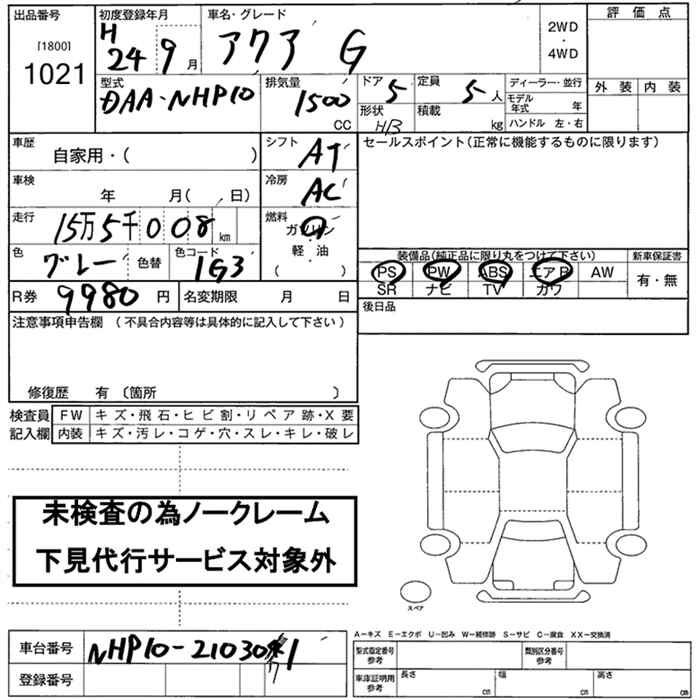 出品番号
[1800]
1021
初度登録年月
H
24 9 月
車名・グレード
アクア G
2WD
・
4WD
評価点
外装 内装
型式
DAA-NHP10
排気量
1500
CC
ドア
5
定員
5 人
形状
H/B
積載
kg
ディーラー・並行
モデル
年式 年
ハンドル 左・右
車歴
自家用・( )
シフト
AT
セールスポイント(正常に機能するものに限ります)
車検
年 月( 日)
冷房
AC
走行
15万5千008 km
燃料
ガソリン
軽・油
( )
色
グレー
色替
色コード
1G3
装備品(純正品に限り丸をつけて下さい)
PS PW ABS エアB AW
SR ナビ TV カワ
新車保証書
有・無
R券 9980 円
名変期限 月 日
後日品
注意事項申告欄 (不具合内容等は具体的に記入して下さい)
修復歴 有 〔箇所 〕
検査員
記入欄
FW キズ・飛石・ヒビ割・リペア跡・X要
内装 キズ・汚レ・コゲ・穴・スレ・キレ・破レ
未検査の為ノークレーム
下見代行サービス対象外
スペア
A-キズ E-エクボ U-凹み W-補修跡 S-サビ C-腐食 XX-交換済
車台番号 NHP10-21030 1
登録番号
型式指定番号
参考
類別区分番号
参考
車庫証明用
参考
長さ cm
幅 cm
高さ cm